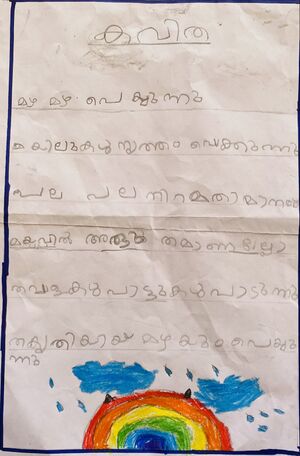 കവിത
മഴ മഴ പെയ്യുന്നു
മയിലുകൾ നൃത്തം വെക്കുന്നു
പല പല നിറമതിമാനത്ത്
മഴവിൽ അത്ഭുതമാണല്ലോ
തവളകൾ പാട്ടുകൾ പാടുന്നു
തകൃതിയായ് മഴയും പെയ്യു
ന്നു